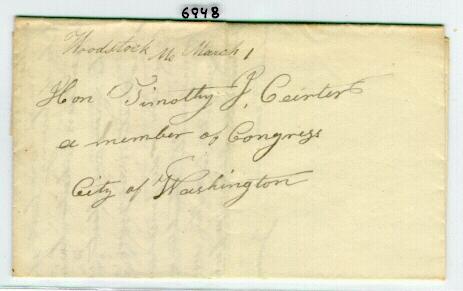 6948
Woodstock Me March 1
Hon Timothy J. Carter
a member of Congress
City of Washington